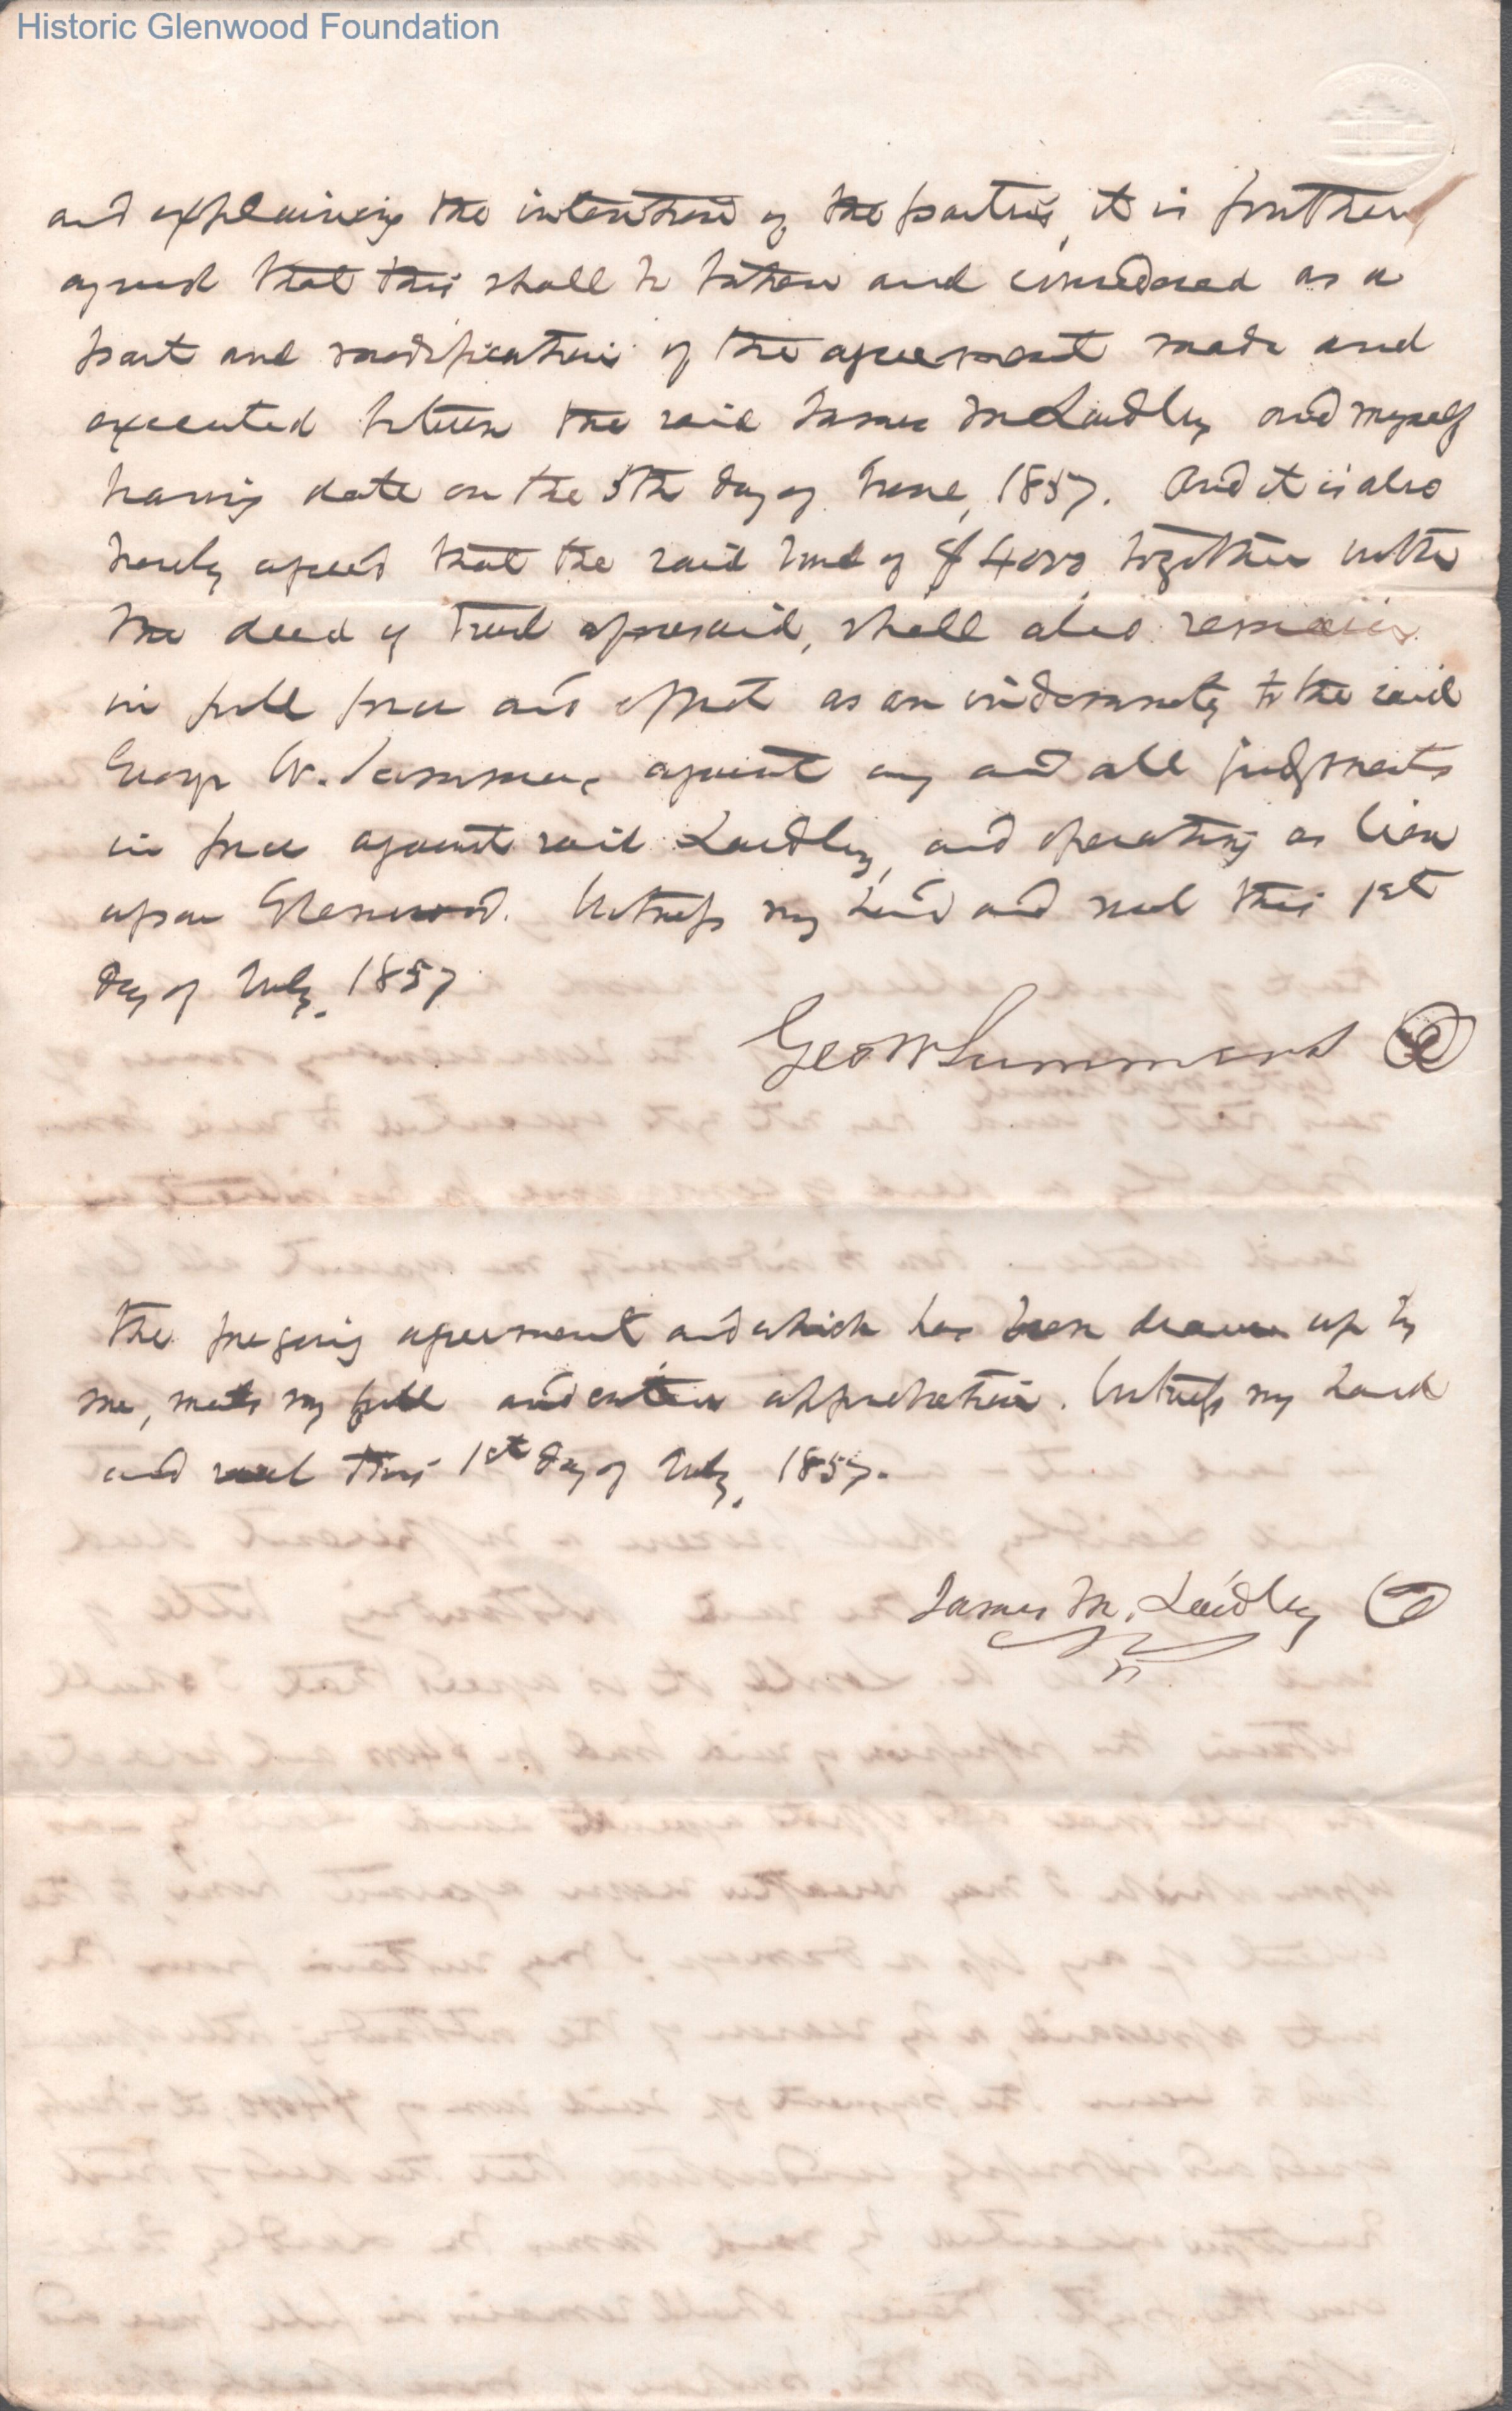 Historic Glenwood Foundation
and explaining the intention of the parties, it is further
agreed that this shall be taken and considered as a
part and modification of the agreement made and
executed between the said James M Laidley and myself
having date on the 5th day of June, 1857. And it is also
hereby agreed that the said bond of $4000, together with
the deed of trust aforesaid, shall also remain
in full force and effect as an indemnity to the said
George W. Summers against any and all judgments
in force against said Laidley, and operating as lien
upon Glenwood. Witness my hand and seal this 1st
day of July, 1857
Geo W Summers
The foregoing agreement and which has been drawn up by
me, meets my full and entire approbation. Witness my hand
and seal this 1st day of July, 1857.
James M. Laidley